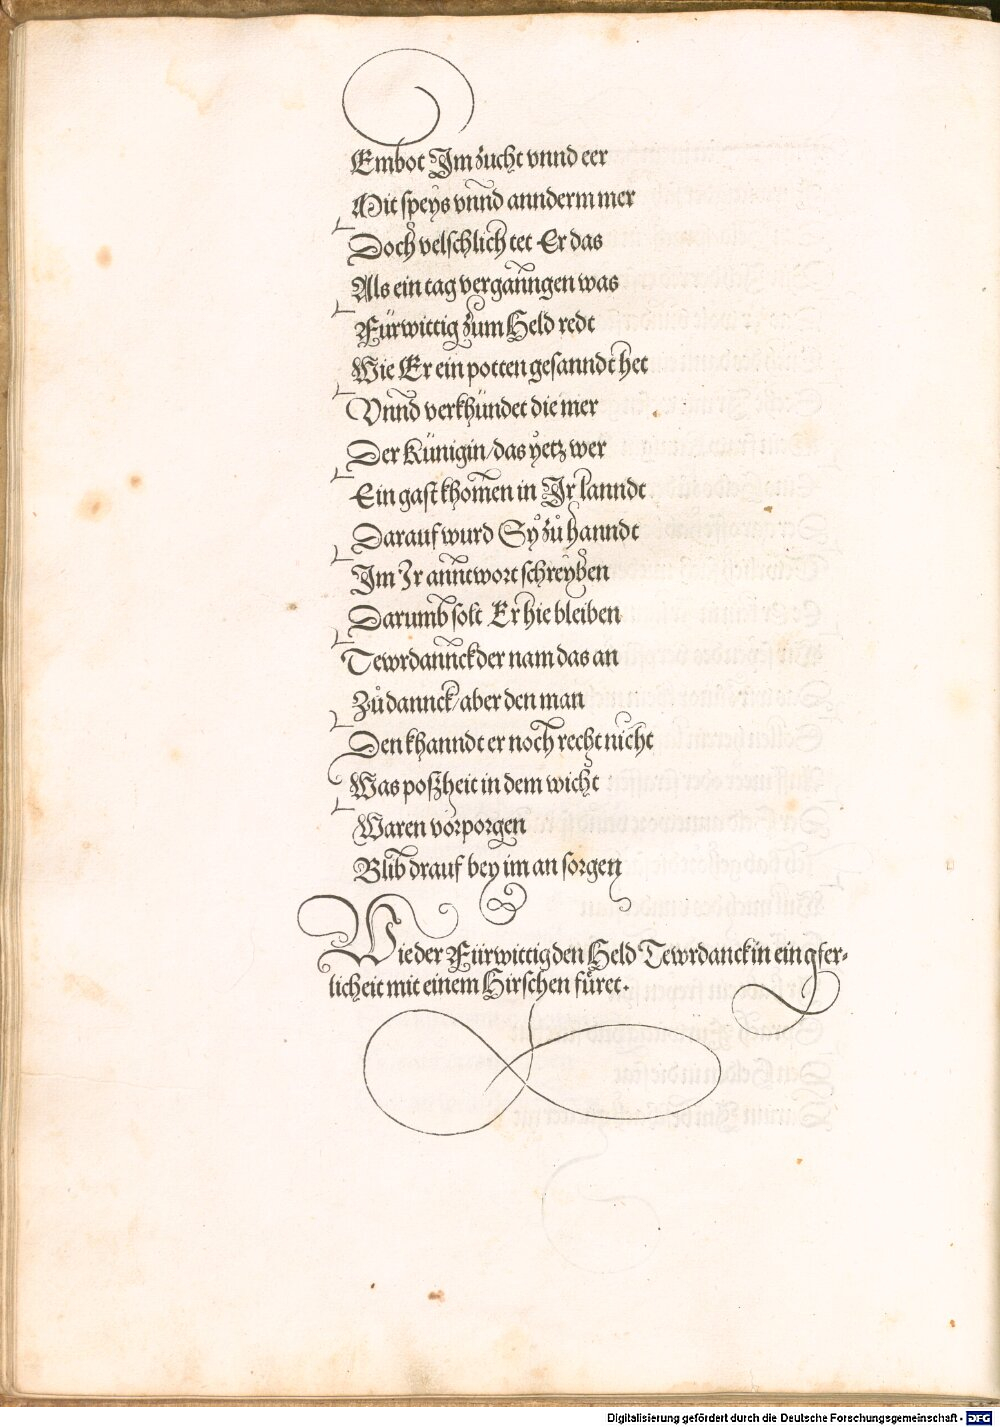 Embot Im zucht vnnd eer
Mit speys vnnd annderm mer
Doch velschlich tet Er das
Als ein tag verganngen was
Fürwittig zum Held redt
Wie Er ein potten gesanndt het
Vnnd verkhündet die mer
Der Künigin/das yetz wer
Ein gast khomen in Ir lanndt
Darauf wurd Sy zů hanndt
Im Ir anntwort schreyben
Darumb solt Er hie bleiben
Tewrdannck der nam das an
Zů dannck/aber den man
Den khanndt er noch recht nicht
Was poßheit in dem wicht
Waren vorporgen
Blib drauf bey im an sorgen
Wie der Fürwittig den Held Tewrdanck in ein gfer-
licheit mit einem Hirschen füret.
Digitalisierung gefördert durch die Deutsche Forschungsgemeinschaft - DFG